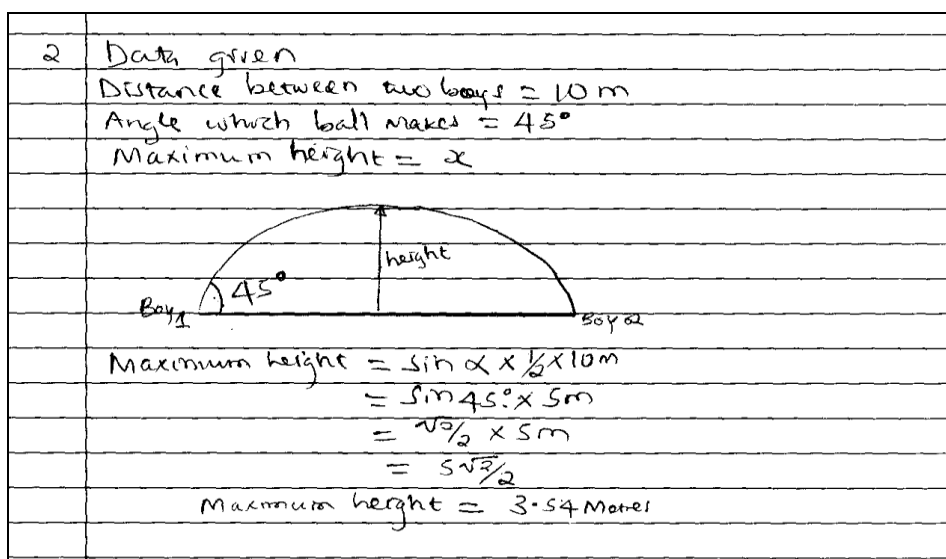 2 Data given
Distance between two boys = 10 m
Angle which ball makes = 45°
Maximum height = x
height
45°
Boy 1
Boy 2
Maximum height = sin α × 1/2 × 10m
= sin 45° × 5m
= √2/2 × 5m
= 5√2/2
Maximum height = 3.54 Metres